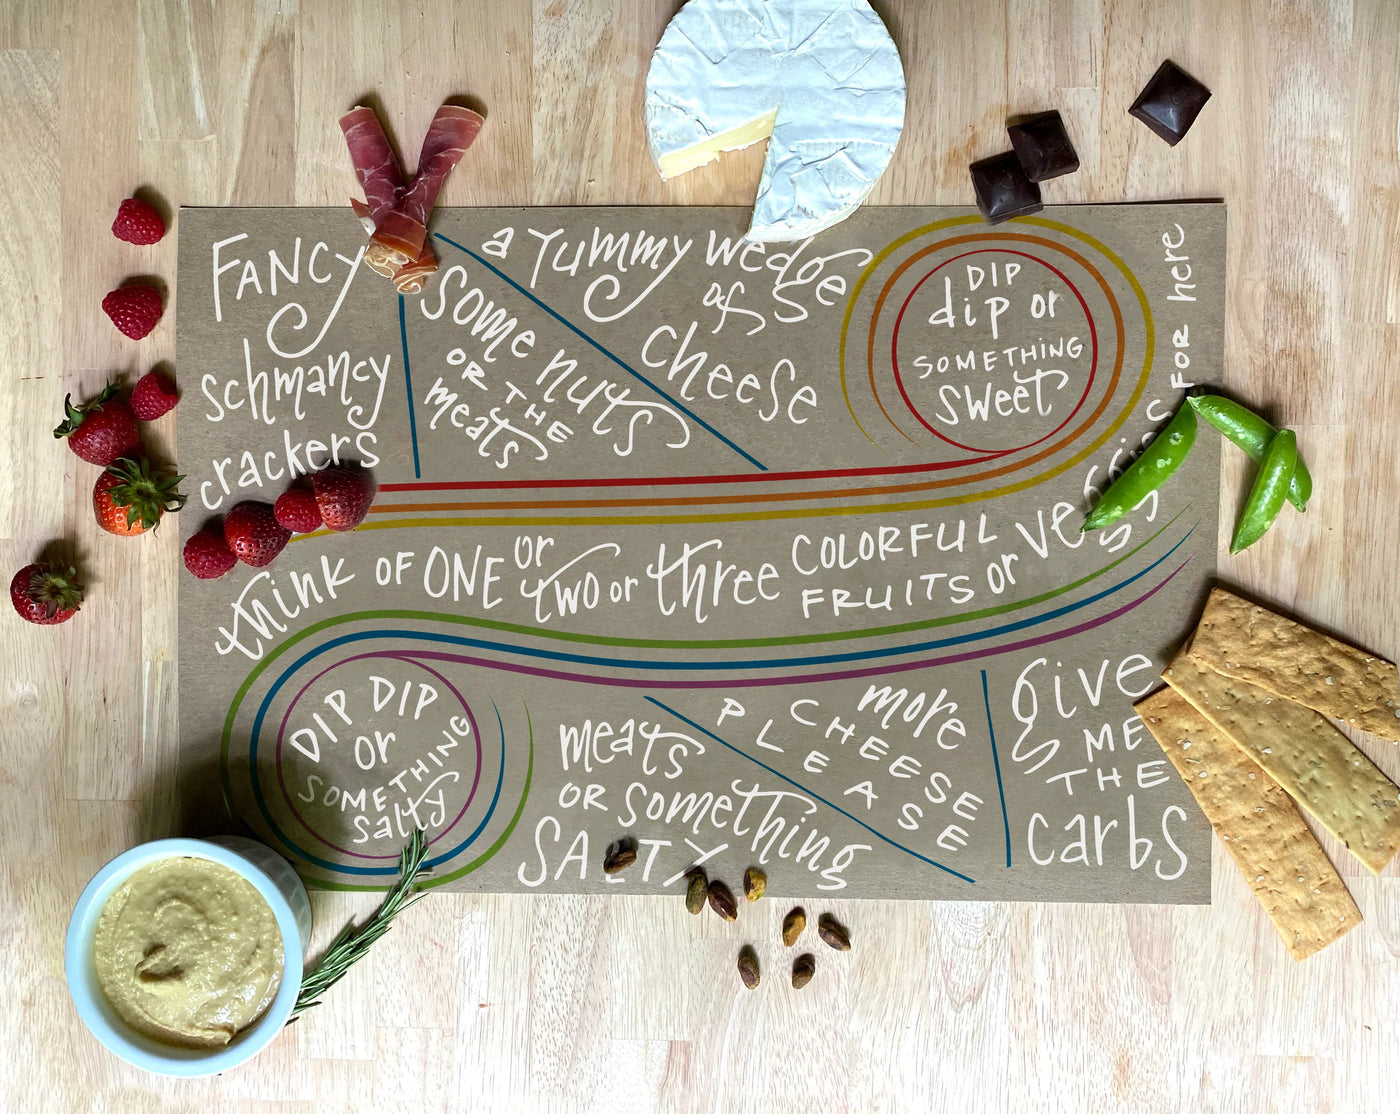 FANCY
schmancy
crackers
some nuts
OR THE
meats
a yummy wedge
of
cheese
DIP
dip or
SOMETHING
sweet
think OF ONE or two or three COLORFUL FRUITS or veggies FOR here
DIP DIP
or
SOMETHING
salty
meats
OR something
SALTY
more
CHEESE
PLEASE
give
ME
THE
carbs